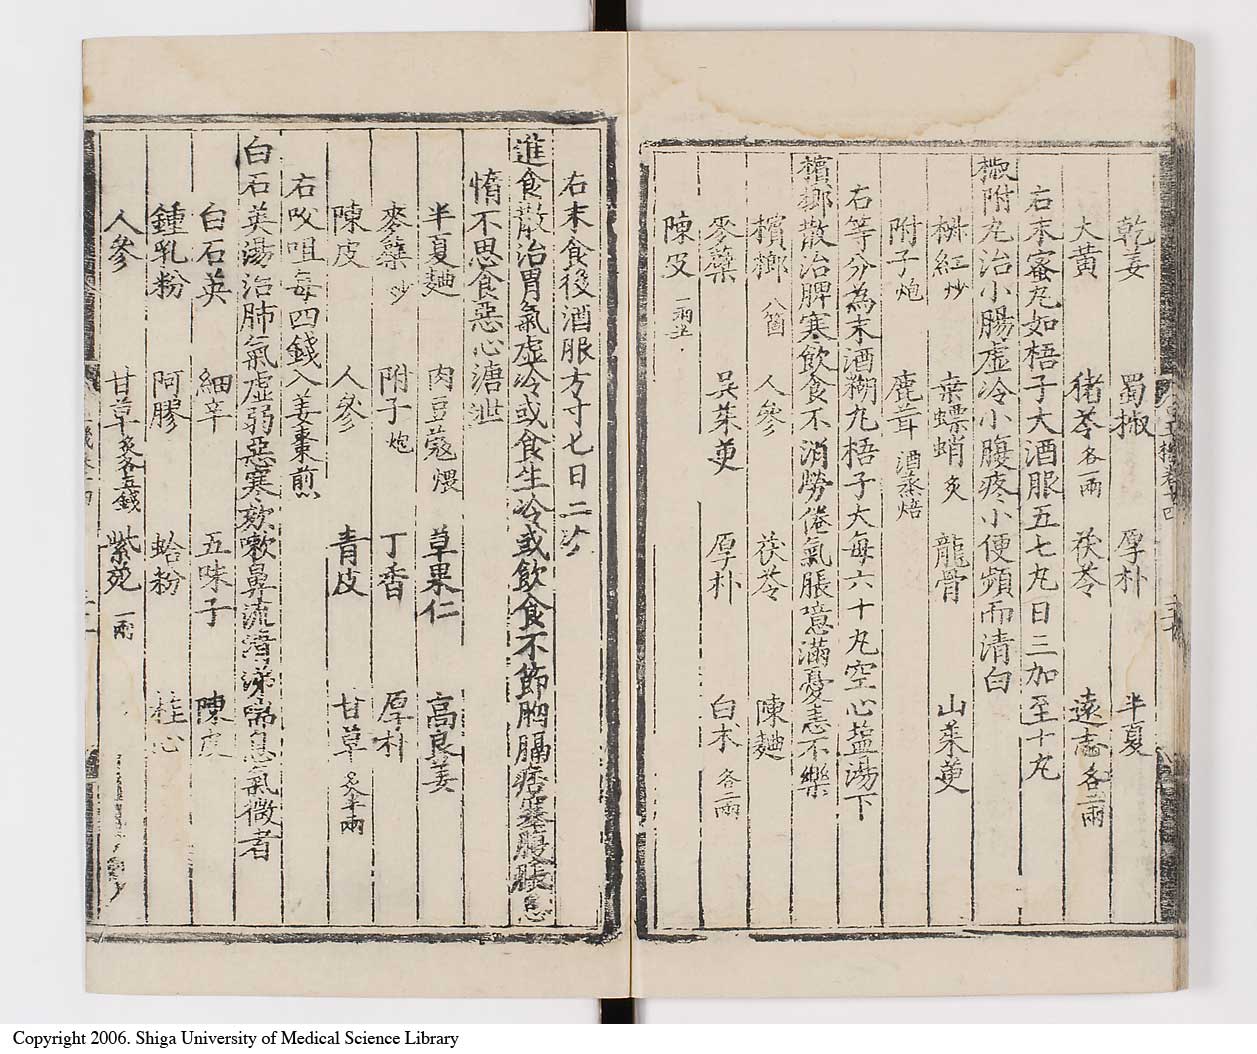 乾姜 蜀椒 厚朴 半夏
大黄 猪苓各一兩 茯苓 遠志各二兩
右末蜜丸如梧子大酒服五七丸日三加至十丸
椒附丸治小腸虛冷小腹疼小便頻而清白
椒紅炒 桒螵蛸炙 龍骨 山茱萸
附子炮 鹿茸酒蒸焙
右等分為末酒糊丸梧子大每六十丸空心塩湯下
檳榔散治脾寒飲食不消勞倦氣脹噫滿憂恚不樂
檳榔八箇 人參 茯苓 陳麯
麥蘗 吳茱萸 厚朴 白朮各二兩
陳皮一兩半
右末食後酒服方寸匕日二
進食散治胃氣虛冷或食生冷或飲食不節胷膈痞塞腸
惰不思食惡心溏泄
半夏麯 肉豆蔻煨 草果仁 高良姜
麥蘗炒 附子炮 丁香 厚朴
陳皮 人參 青皮 甘草炙半兩
右㕮咀每四錢入姜棗煎
白石英湯治肺氣虛弱惡寒欬嗽鼻流清涕喘息氣微者
白石英 細辛 五味子 陳皮
鍾乳粉 阿膠 蛤粉 桂心
人參 甘草炙各五錢 紫菀一兩
Copyright 2006. Shiga University of Medical Science Library